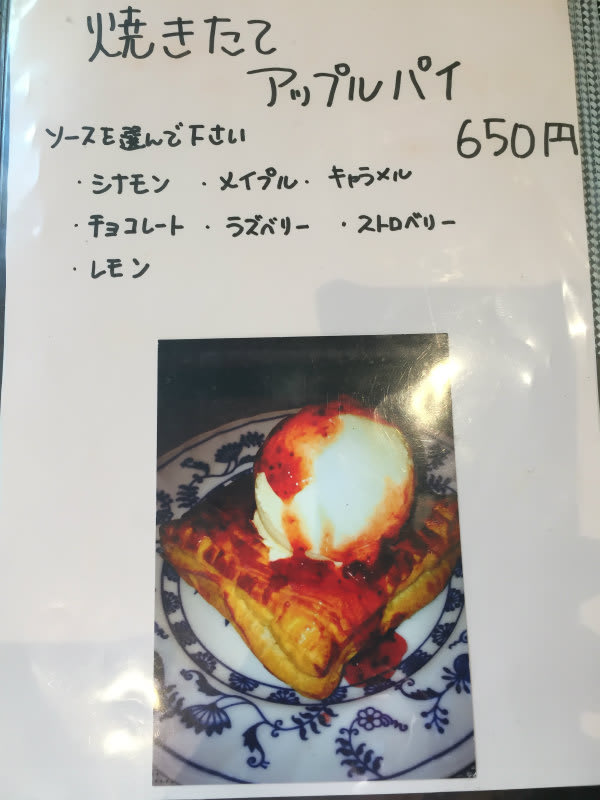 焼きたて
アップルパイ
650円
ソースを選んで下さい
・シナモン ・メイプル・ キャラメル
・チョコレート ・ラズベリー ・ストロベリー
・レモン